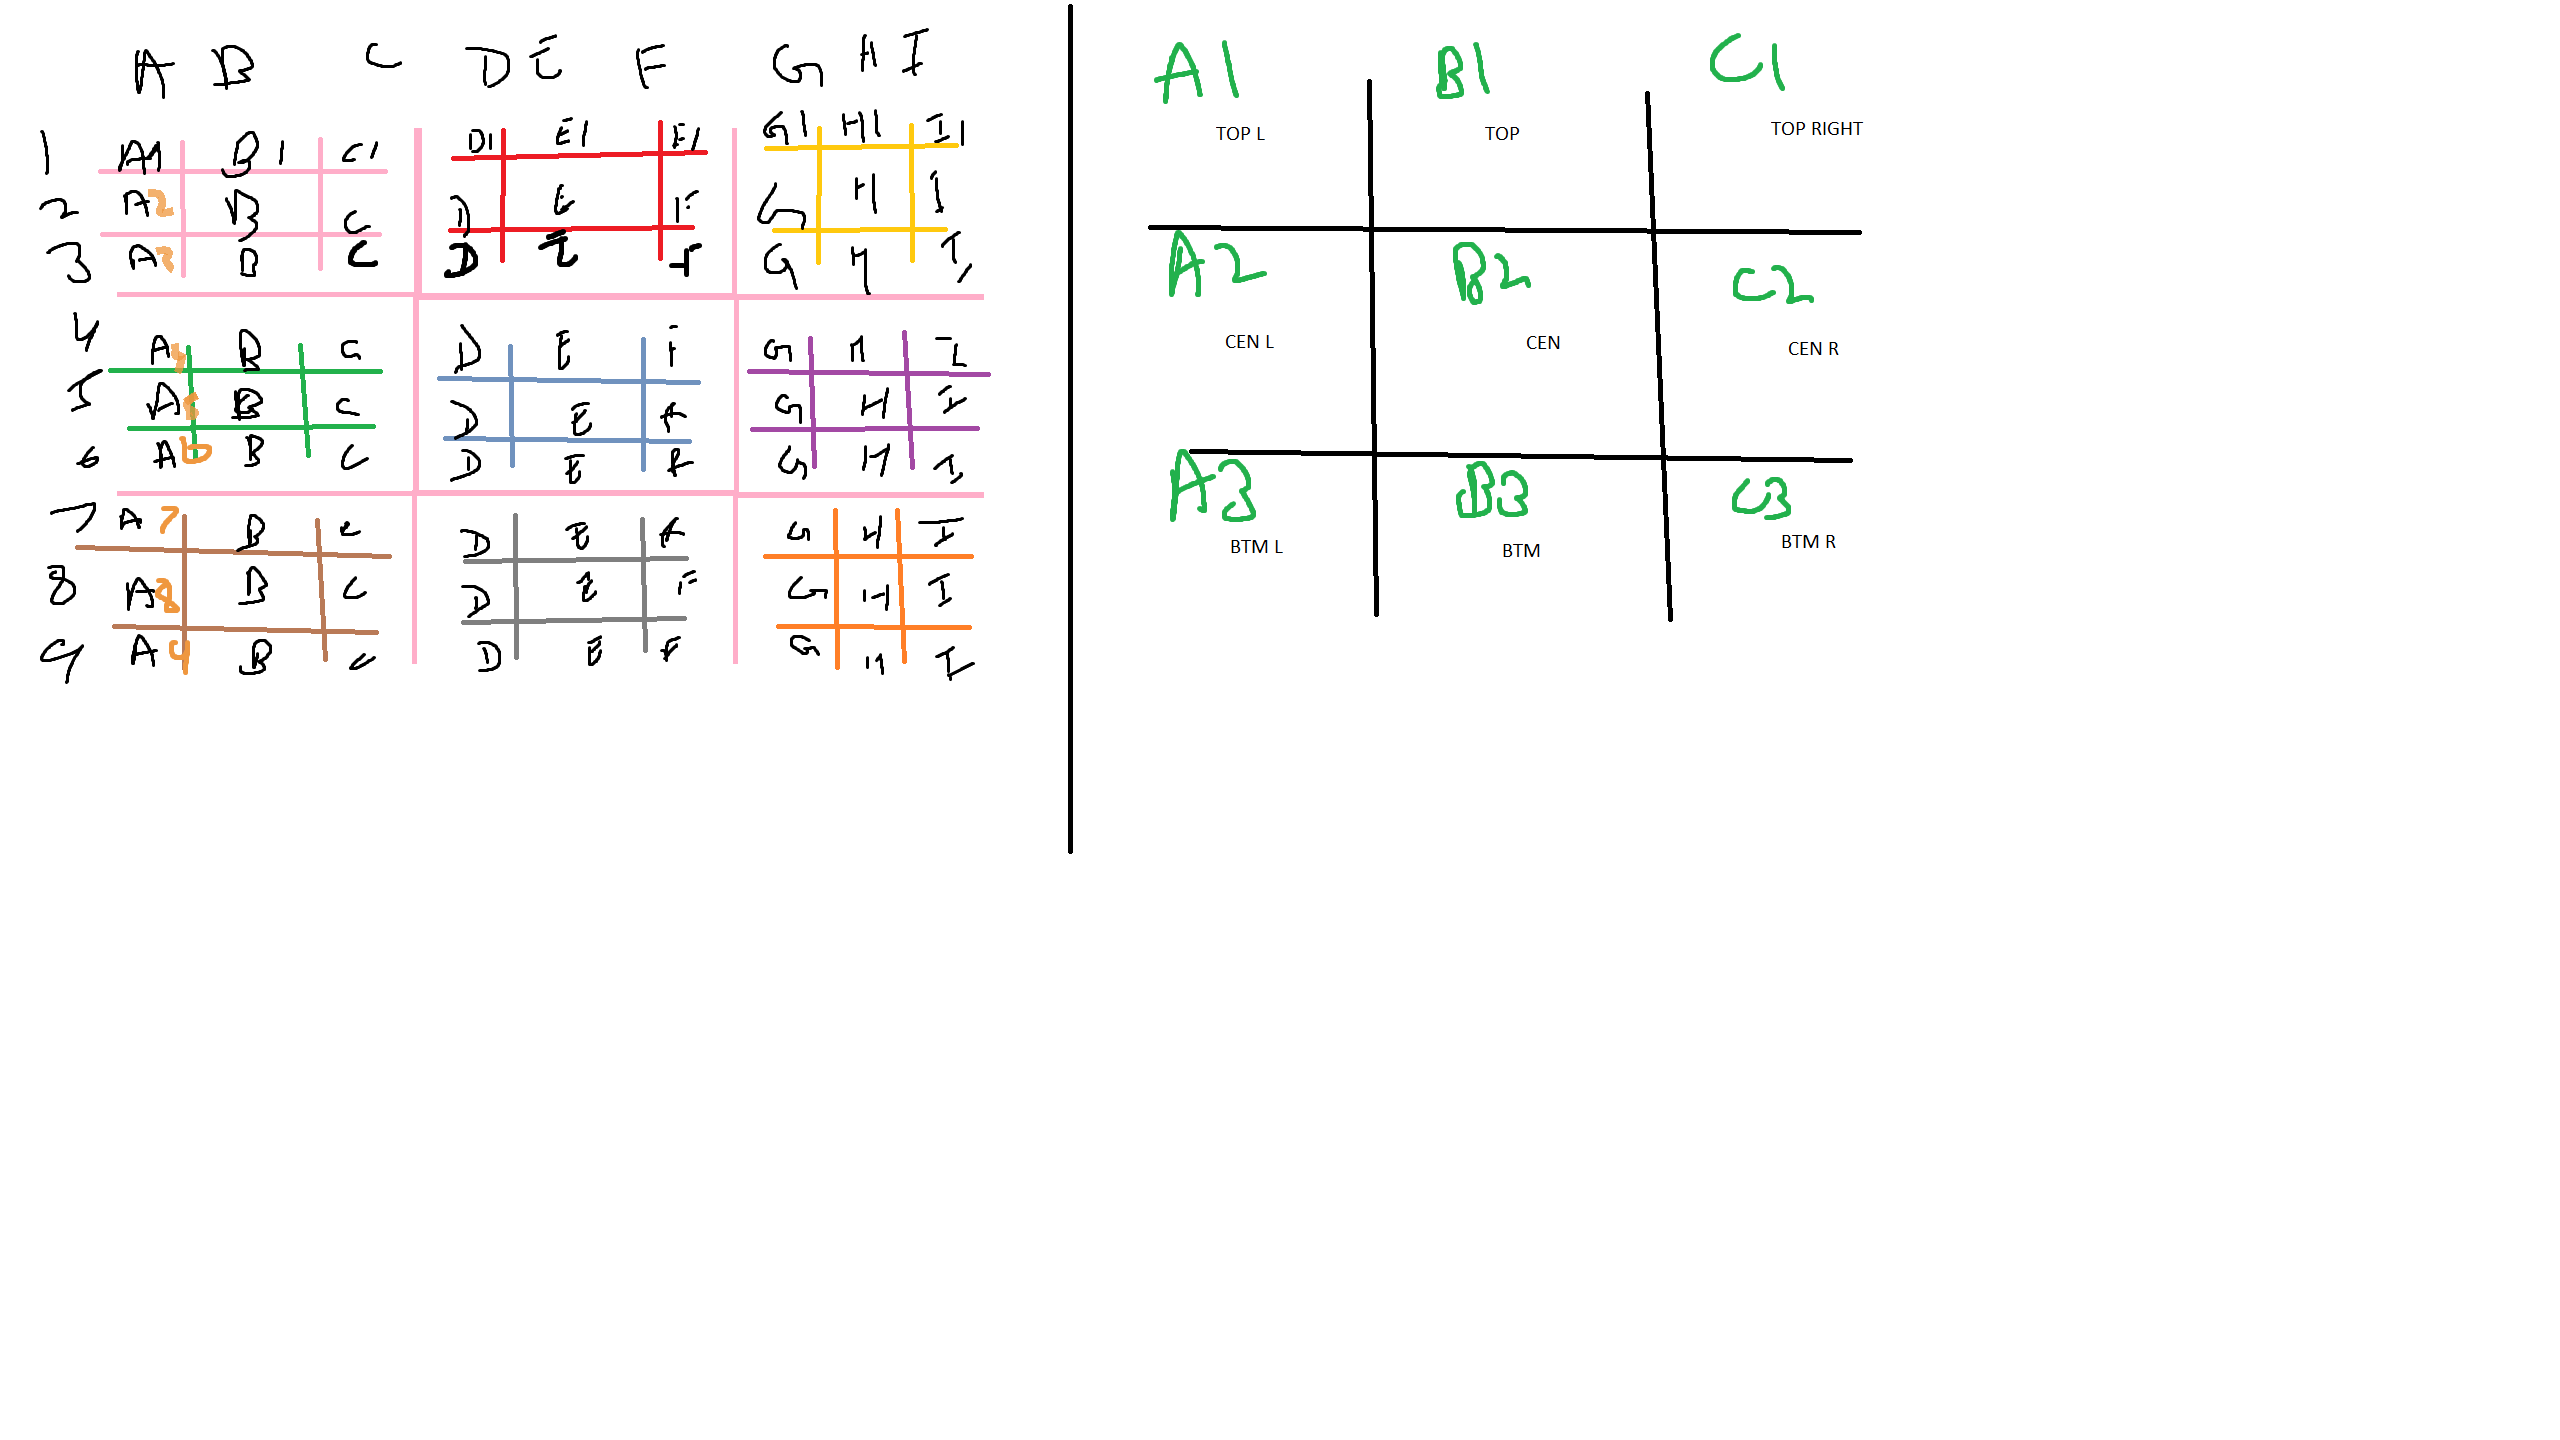 A B C D E F G H I
1 A1 B1 C1 D1 E1 F1 G1 H1 I1
2 A2 B C D E F G H I
3 A3 B C D E F G H I
4 A4 B C D E F G H I
5 A5 B C D E F G H I
6 A6 B C D E F G H I
7 A7 B C D E F G H I
8 A8 B C D E F G H I
9 A9 B C D E F G H I
A1 B1 C1
TOP L TOP TOP RIGHT
A2 B2 C2
CEN L CEN CEN R
A3 B3 C3
BTM L BTM BTM R